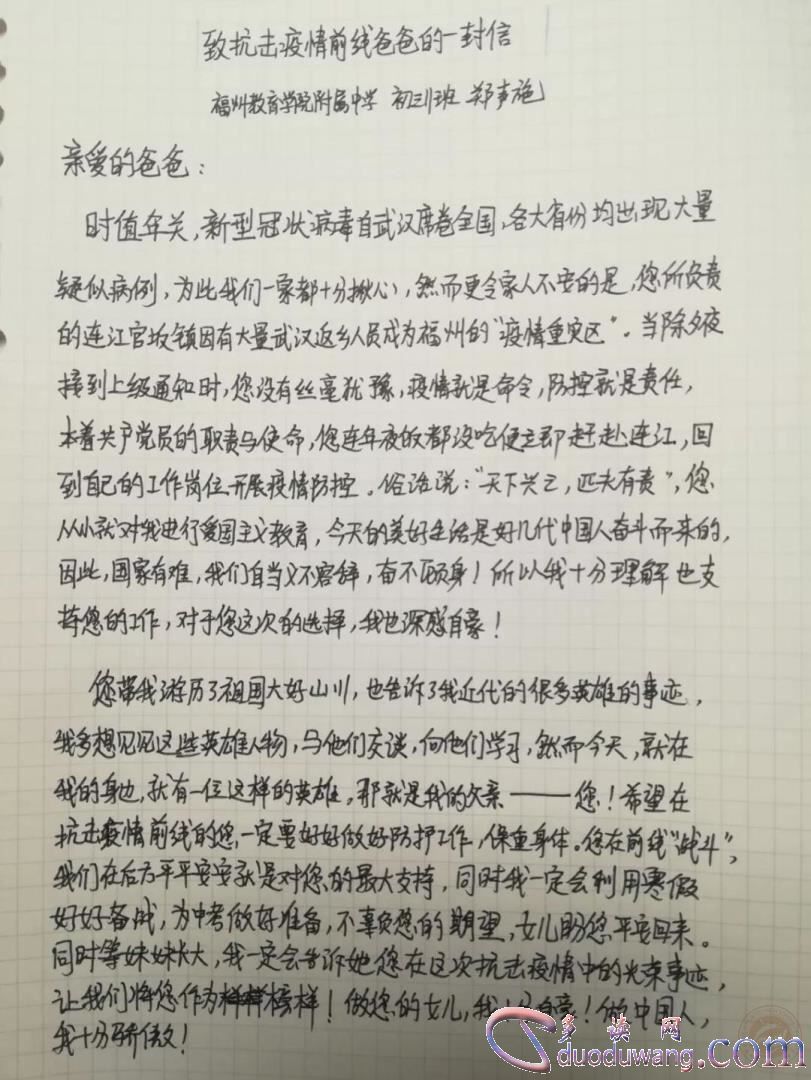 致抗击疫情前线爸爸的一封信
福州教育学院附属中学 初三1班 郑聿施
亲爱的爸爸：
时值年关，新型冠状病毒自武汉席卷全国，各大省份均出现大量
疑似病例，为此我们一家都十分揪心，然而更令家人不安的是，您所负责
的连江官坂镇因有大量武汉返乡人员成为福州的“疫情重灾区”。当除夕夜
接到上级通知时，您没有丝毫犹豫，疫情就是命令，防控就是责任，
本着共产党员的职责与使命，您连年夜饭都没吃便立即赶赴连江，回
到自己的工作岗位开展疫情防控。俗语说：“天下兴亡，匹夫有责”，您
从小就对我进行爱国主义教育，今天的美好生活是好几代中国人奋斗而来的，
因此，国家有难，我们自当义不容辞，奋不顾身！所以我十分理解也支
持您的工作，对于您这次的选择，我也深感自豪！
您带我游历了祖国大好山川，也告诉了我近代的很多英雄的事迹，
我多想见见这些英雄人物，与他们交谈，向他们学习，然而今天，就在
我的身边，就有一位这样的英雄。那就是我的父亲——您！希望在
抗击疫情前线的您，一定要好好做好防护工作，保重身体。您在前线“战斗”，
我们在后方平平安安就是对您的最大支持，同时我一定会利用寒假
好好备战，为中考做好准备，不辜负您的期望，女儿盼您平安回来。
同时等妹妹长大，我一定会告诉她您在这次抗击疫情中的光荣事迹，
让我们将您作为榜样！做您的女儿，我十分自豪！做中国人，
我十分骄傲！
多读网
duoduwang.com